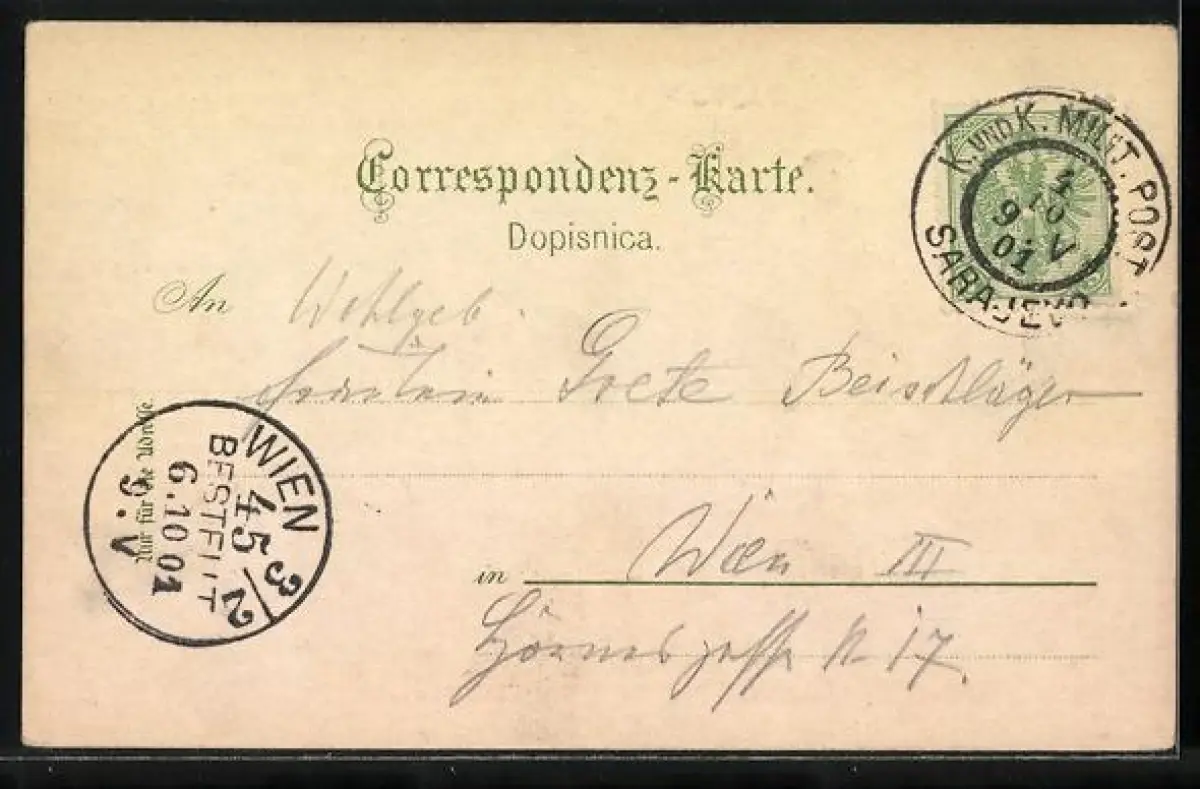 Correspondenz-Karte.
Dopisnica.
K. UND K. MILIT. POST
SARAJEVO
4
10
9 V
01
An Wohlgeb.
Fräulein Grete Beischläger
Nur für die Adresse.
WIEN 3/2
45
BESTELLT
6.10 01
9.V
in Wien III
Hörnesgasse N 17.